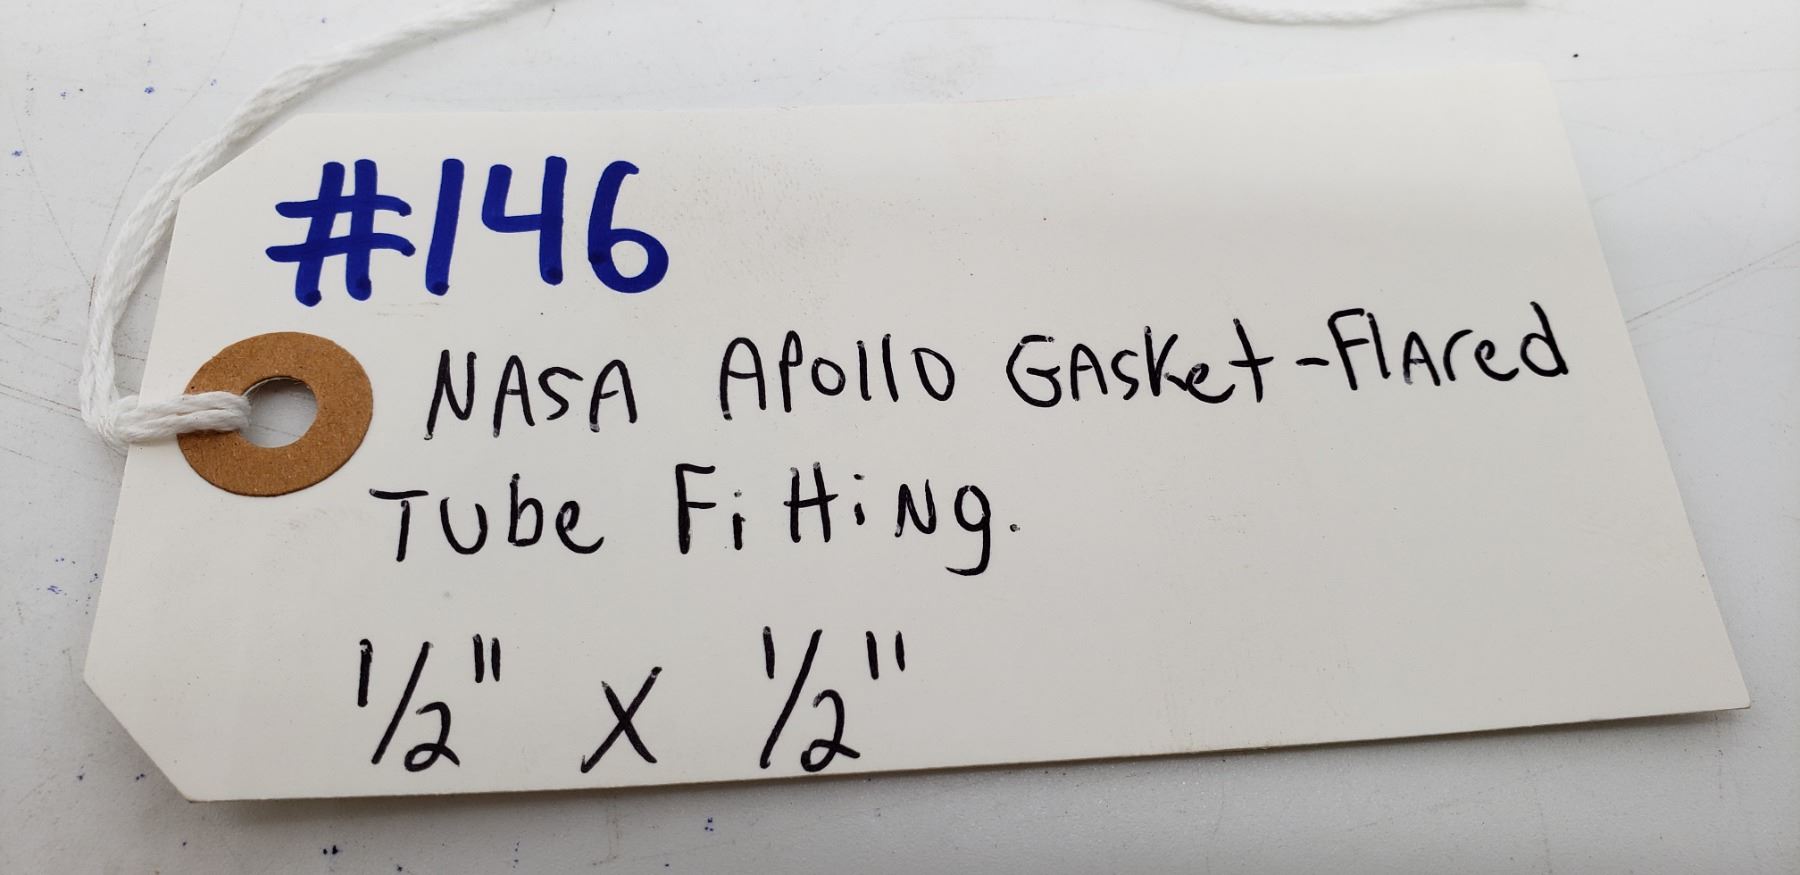 #146
NASA Apollo Gasket-Flared
Tube Fitting.
1/2" X 1/2"